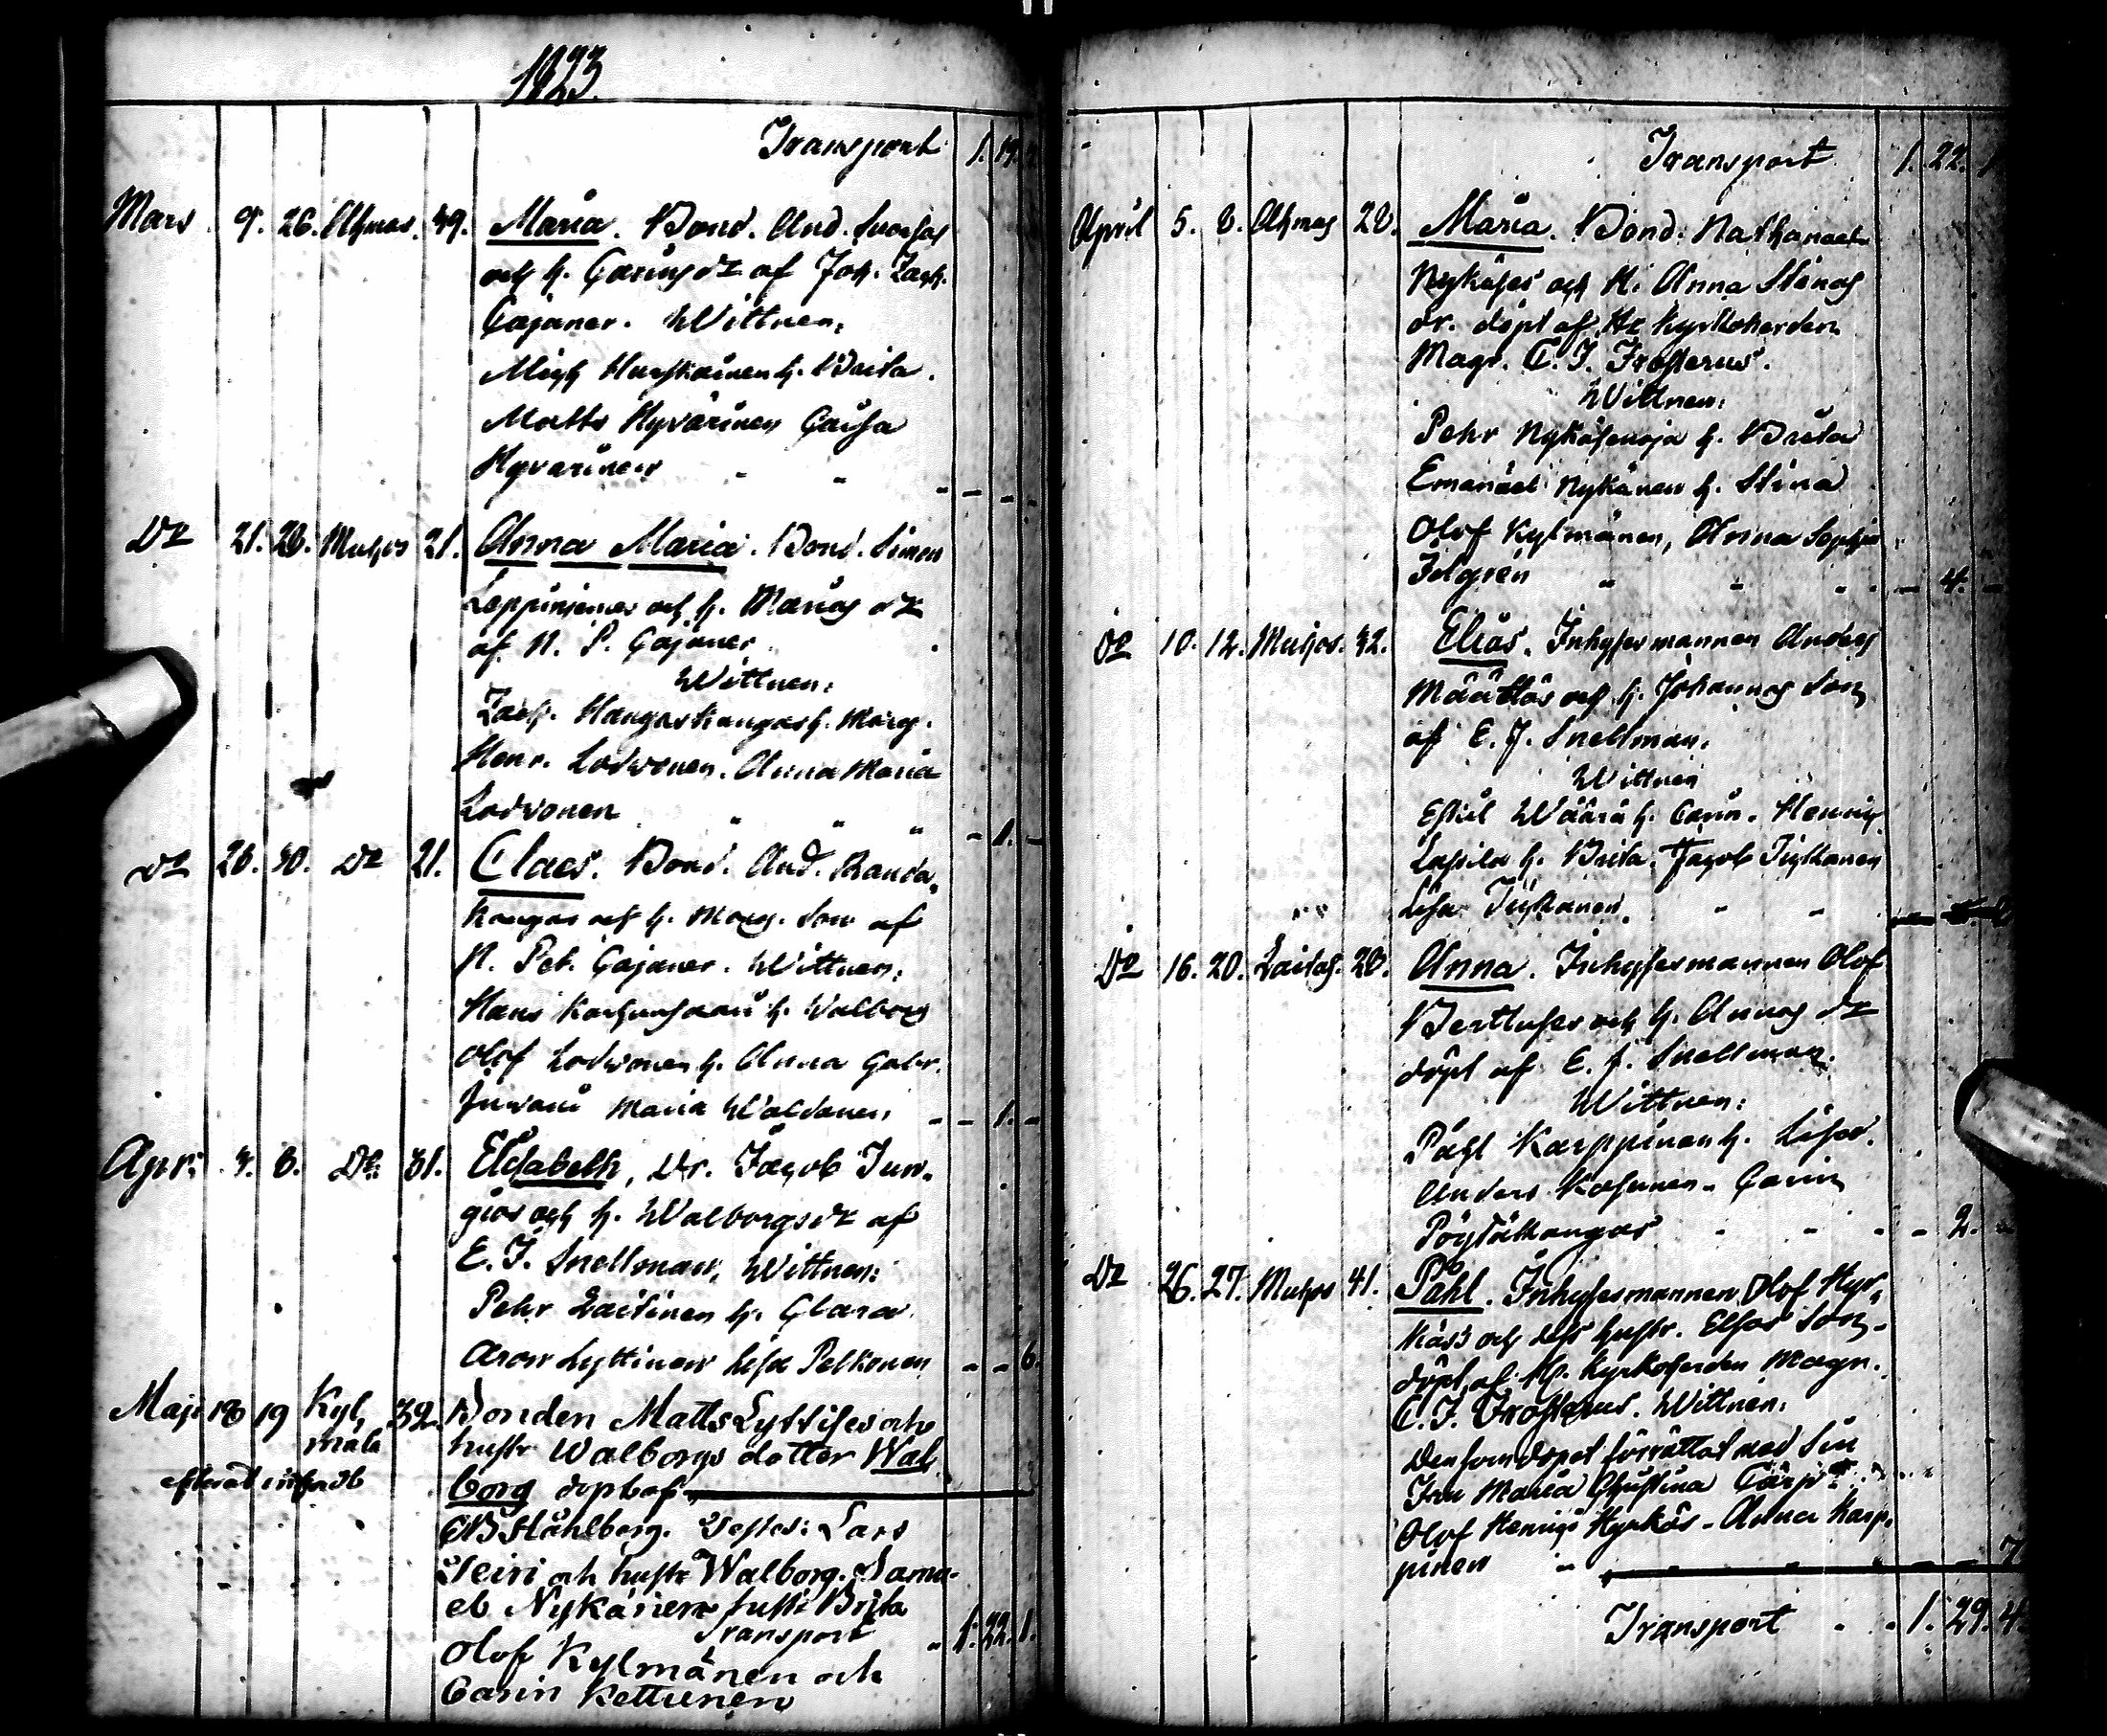 1823.
Transport 1. 19.
Mars 9. 26. Uhmas 39. Maria. Bond. And.
och h. Carins dr af Joh. Zach.
Cajaner. Wittnen:
Mich h. Brita.
Matts Hyvärinen Caisa
Hyvärinen
Do 21. 28. Muhos 21. Anna Maria. Bond. Simon
Leppiniemes och h. Marias dr
af N. P. Cajaner
Wittnen:
Zach. Hangaskangas h. Marg.
Henr. Lodvonen. Anna Maria
Lodvonen - 1. -
Do 26. 30. Do 21. Claes. Bond. And. Randa-
kangas och h. Marg. Son af
N. Pet. Cajaner. Wittnen:
Hans h. Walborg
Olof Lodvonen h. Anna Gabr.
Juvani Maria - 1. -
Apr: 3. 8. Do: 31. Elisabeth, Dr. Jacob Jur-
och h. Walborgs dr af
E. J. Snellman, Wittnen:
Pehr Laitinen h. Clara
Aron Lyttinen Lisa Pelkonen - - 6.
Maji 18 19 Kyl 32. Bonden Matts och
mälä hustr Walborgs dotter Wal
efteråt infördt borg döpt af
Ståhlberg. Testes: Lars
och hustr Walborg. Samu-
el Nykänen hustr Brita
Transport 1. 22. 1.
Olof Kylmänen och
Carin Kettunen
Transport 1. 22. 1
April 5. 8. Uhmas 28. Maria. Bond: Nathanael
Nykäses och H. Anna Stinas
dr. döpt af Hr Kyrkoherden
Magr. C. J. Frosterus.
Wittnen:
Pehr h. Brita
Emanuel Nykänen h. Stina
Olof Kylmänen, Anna Sophia
- 4. -
Do 10. 12. Muhos. 32. Elias. Inhysesmannen Anders
Määttäs och h. Johannas Son
af E. J. Snellman.
Wittnen
Eskil Wäärä h. Carin. Henric
Lassila h. Brita. Jacob Tiihonen
Lisa Tiihonen.
Do 16. 20. Laitas. 28. Anna. Inhysesmannen Olof
och h. Annas dr
döpt af E. J. Snellman.
Wittnen:
Påhl Karppinen h. Lisa.
Anders Carin
Pöytäkangas - 2. -
Do 26. 27. Muhos 41. Påhl. Inhysesmannen Olof Hyr-
käs och dess hustr. Elsas Son-
döpt af Hr. Kyrkoherden Magr.
C. J. Frosterus. Wittnen:
Den som dopet förrättat med Sin
Fru Maria Christina
Olof Henrics Hyrkäs - Anna Karp-
pinen - - 7
Transport 1. 29. 4.